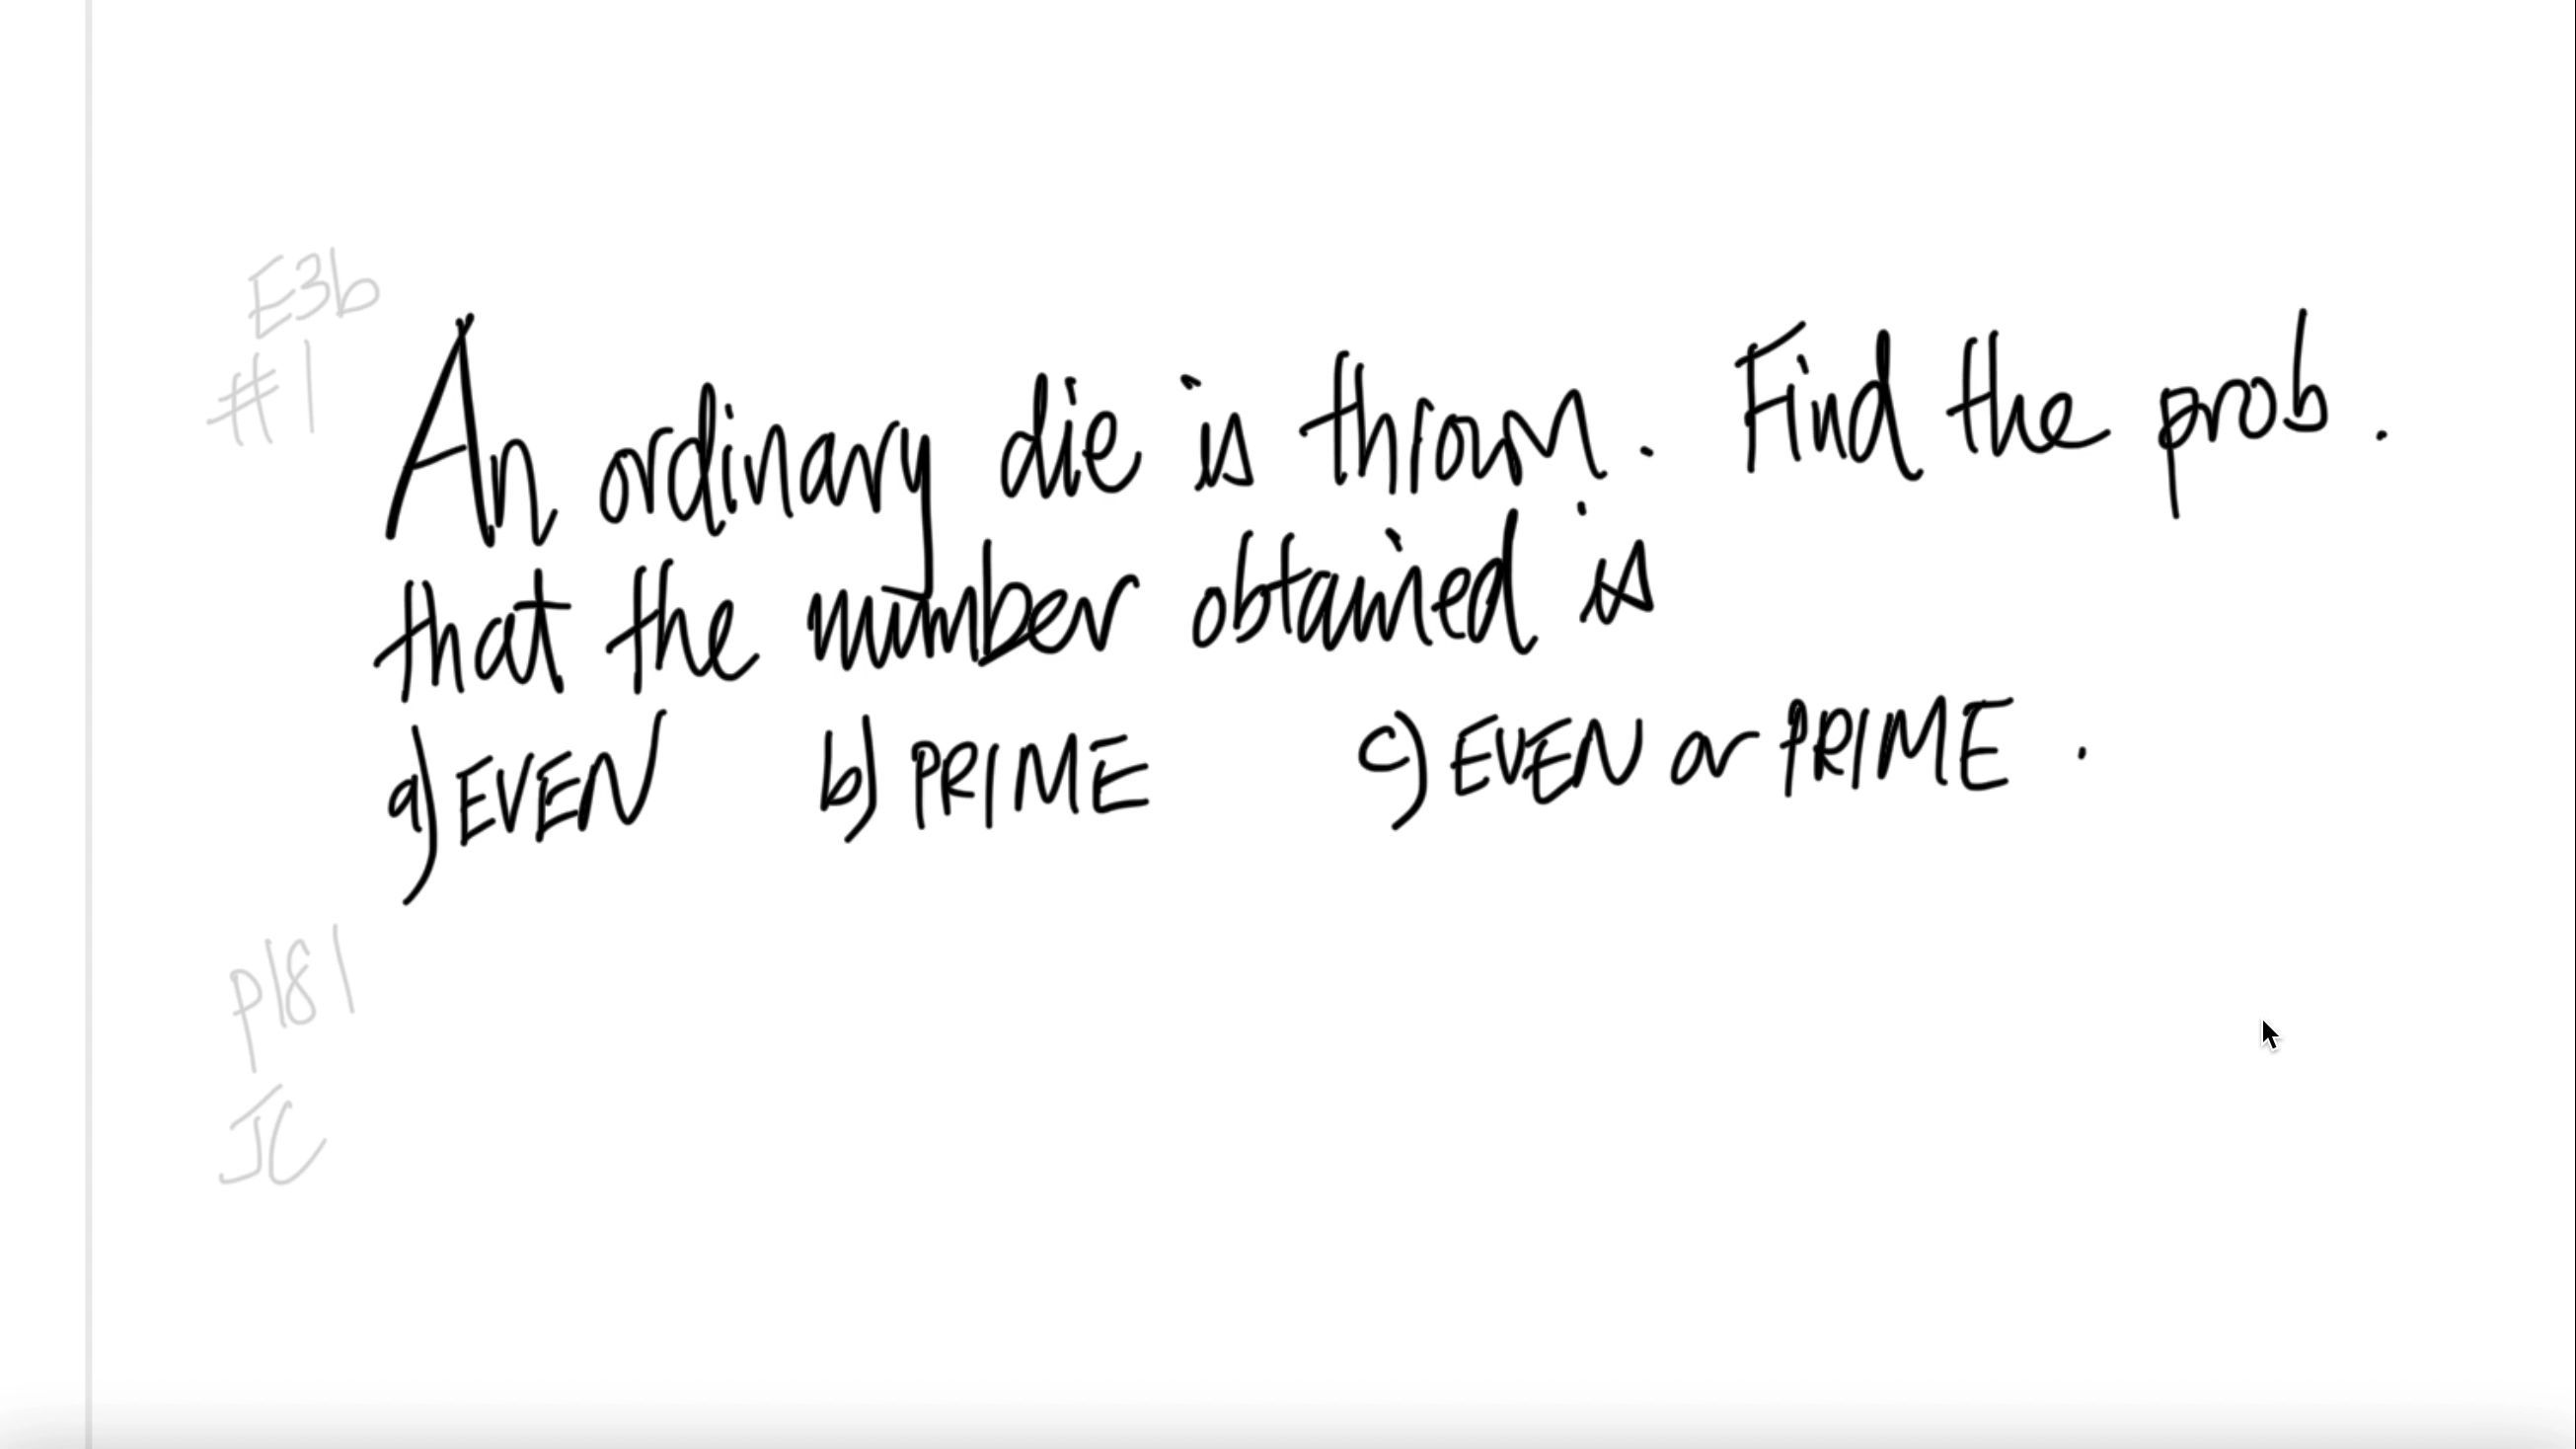 E3b
#1
An ordinary die is thrown. Find the prob.
that the number obtained is
a) EVEN b) PRIME c) EVEN or PRIME.
p181
JC